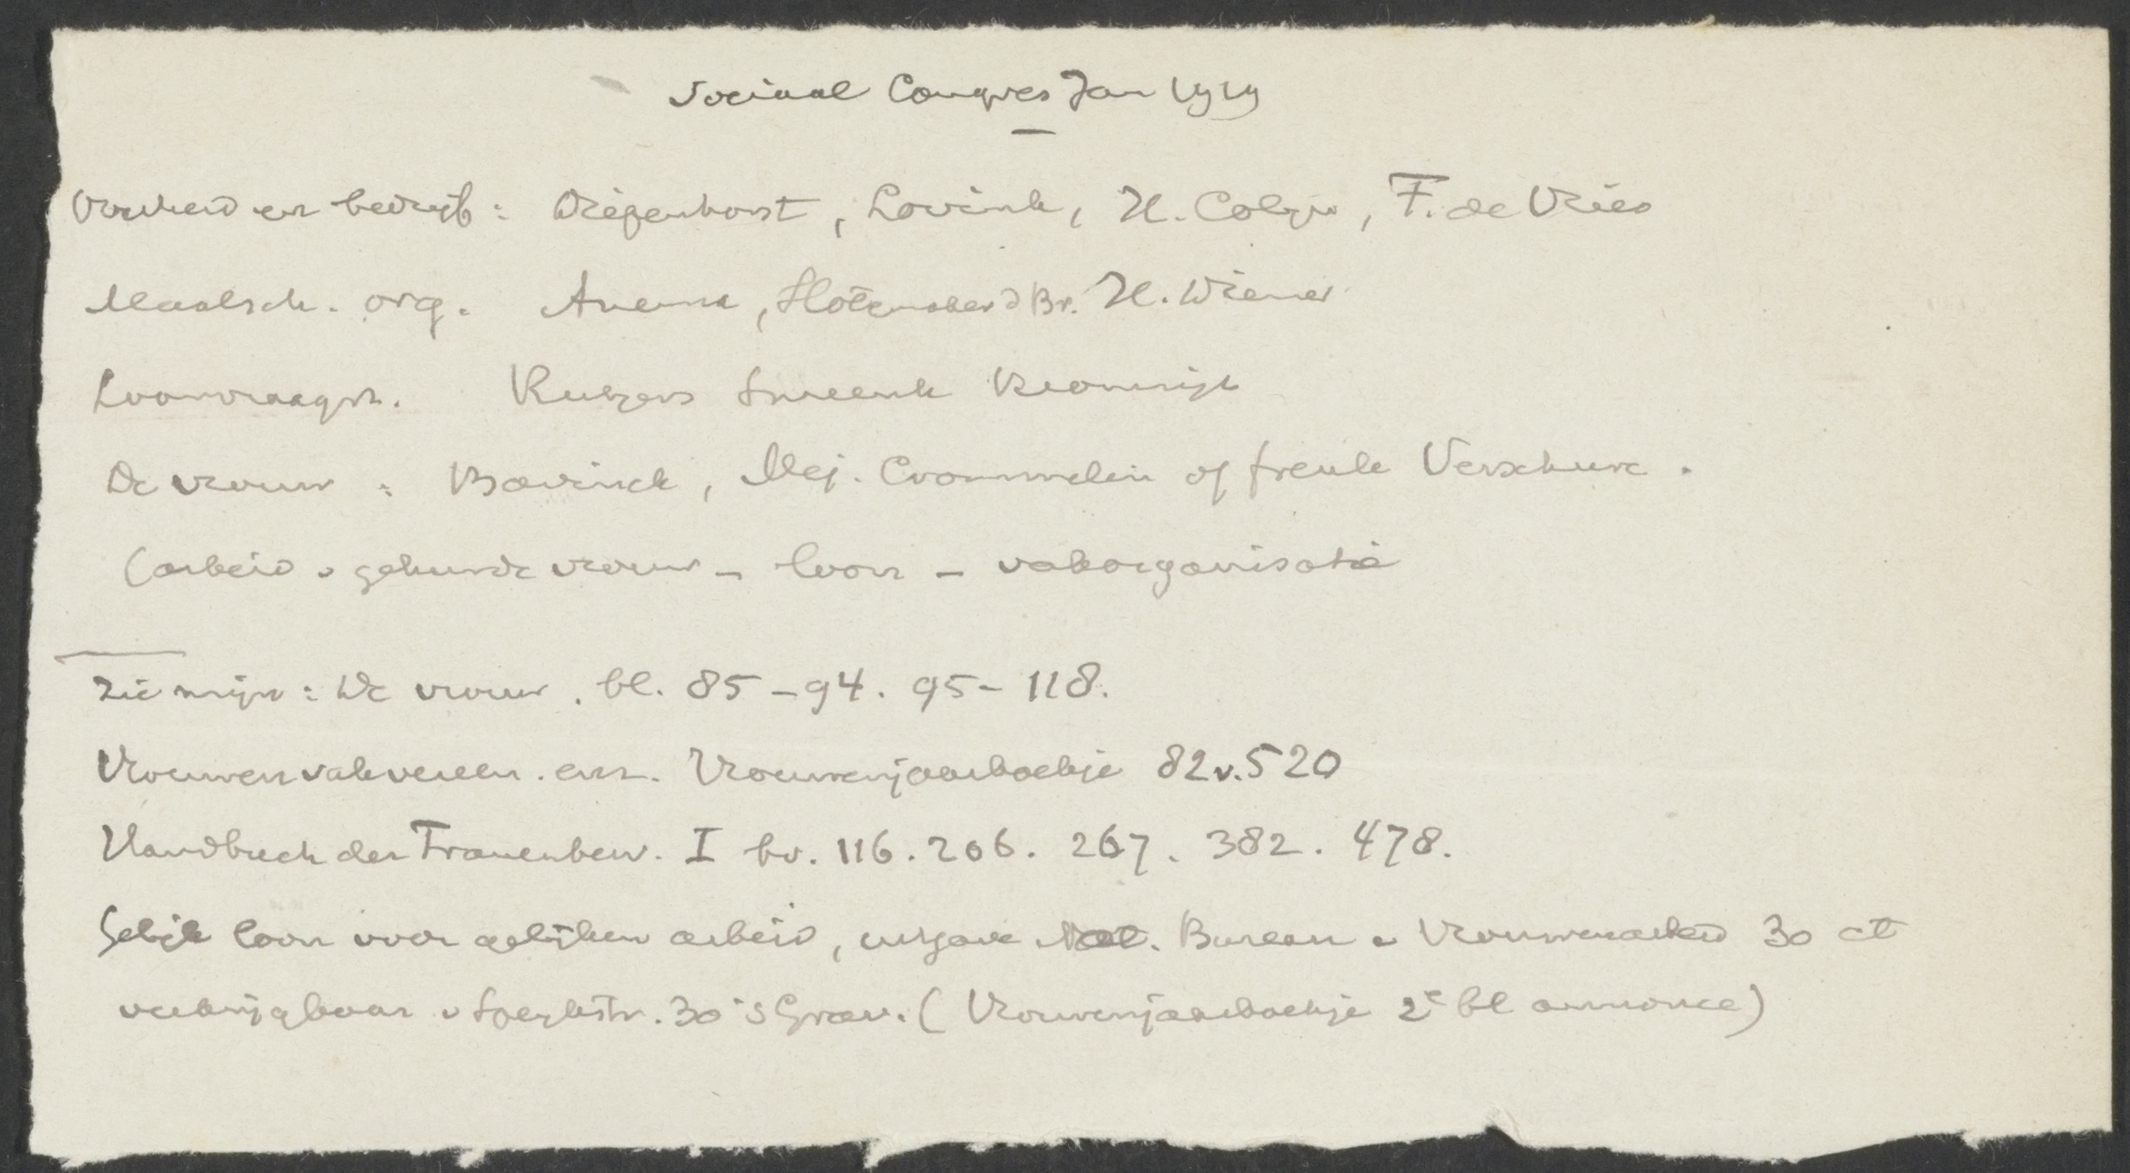 Sociaal Congres Jan 1919
Overheid en bedrijf: Diepenhorst, Lovink, H. Colijn, F. de Vries
Maatsch. org. Anema, H. Wiener
Loonvraagst. Rutgers Smeenk
De vrouw: Bavinck, Mej. Crommelin of freule Verschuer.
(arbeid v gehuwde vrouw - loon - vakorganisatie
Zie mijn: De vrouw. bl. 85-94. 95-118.
Vrouwenvakvereen. enz. Vrouwenjaarboekje 82v. 520
Handbuch der Frauenbew. I bv. 116. 206. 267. 382. 478.
Gelijk loon voor gelijken arbeid, uitgave Nat. Bureau v Vrouwenarbeid 30 ct
verkrijgbaar 30 's Grav. (Vrouwenjaarboekje 2e bl annonce)